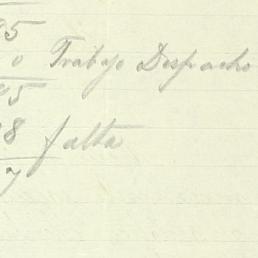 95
0 Trabajo Despacho
95
8 falta
7